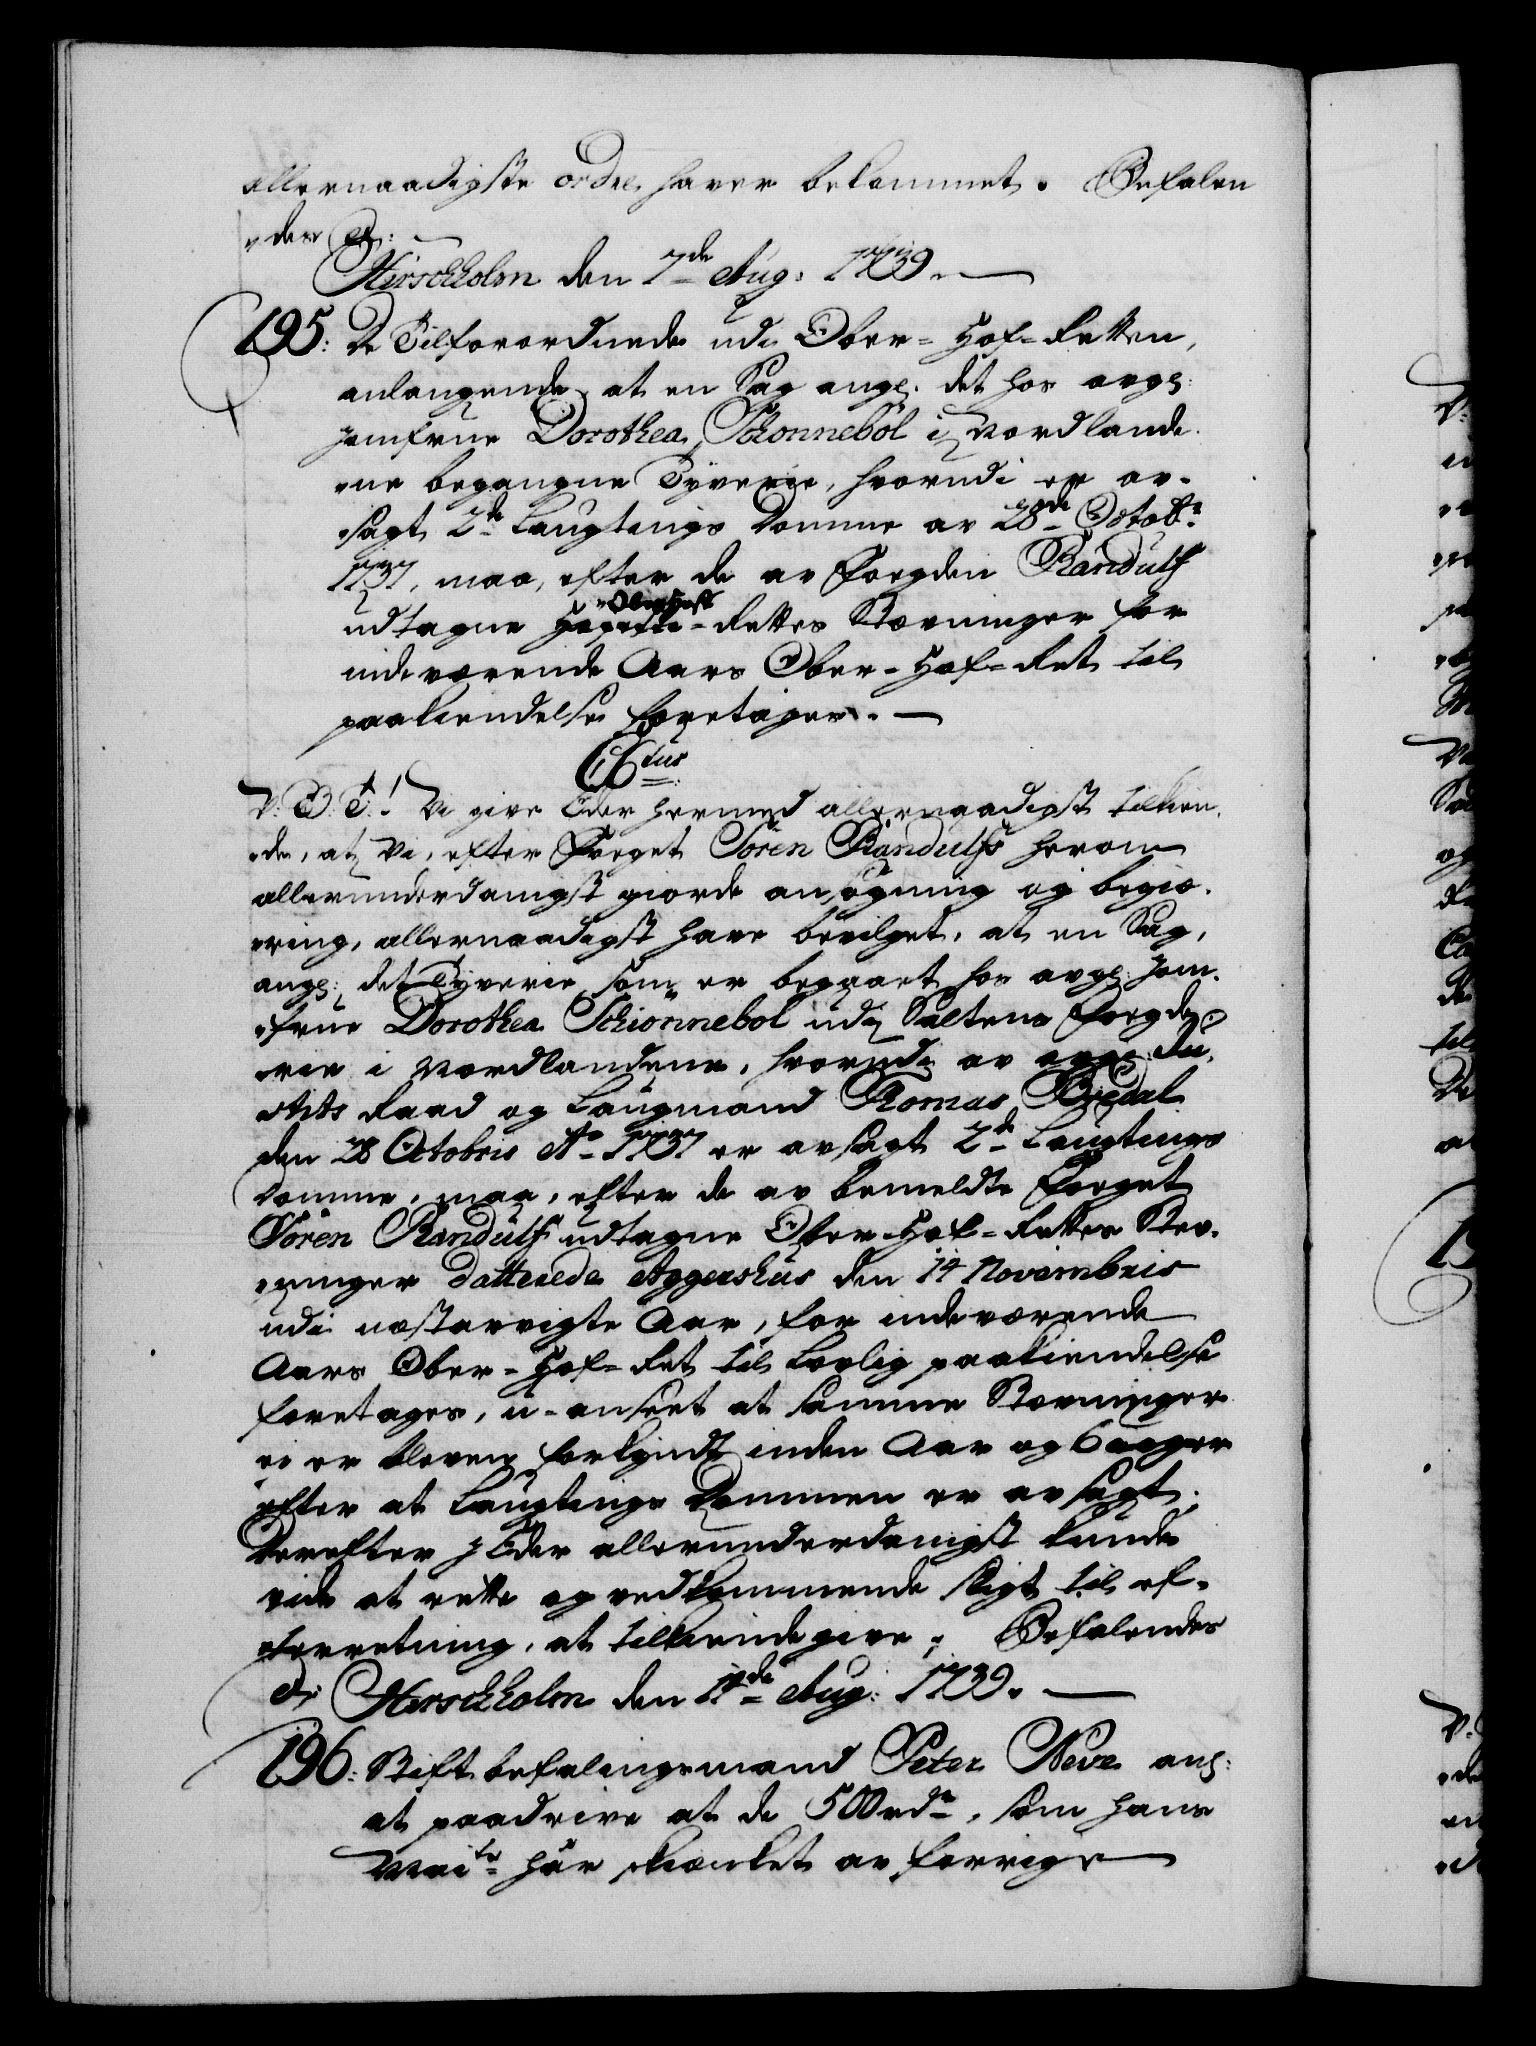 allernaadigste ordre haver bekommet. Befalen
"des etc:
Hirschholm den 7de Aug: 1739.
195: De Tilforordnede udi Ober-Hof-Retten,
anlangende, at en Sag angl. det hos avgl:
Jomfrue Dorothea Schonneböl i Nordlande-
"ne begangne Tyverie, hvorudi er av-
"sagt 2de Laugtings Domme av 28de Octobr:
1737, maa, efter de av Fogden Randulf
udtagne Ober Hof-Rettes Stevninger for
indeværende Aars Ober-Hof-Ret til
paakiendelse foretages.
Ctus
V: G: T:! Vi give Eder hermed allernaadigst tilkien-
"de, at Vi, efter Foeget Sören Randulfs herom
allerunderdanigst giorde ansøgning og begiæ-
"ring, allernaadigst have bevilget, at en Sag,
angl: det Tyverie, som er begaaet hos avgl: Jom-
"frue Dorothea Schionnebol udi Saltens Foegde-
"rie i Nordlandene, hvorudi av avgl: Ju-
"stits Raad og Laugmand Tomas Bredal
den 28 Octobris Ao 1737 er avsagt 2de Laugtings
Domme, maa, efter de av bemeldte Foeget
Sören Randulf udtagne Ober-Hof-Rettes Stev-
"ninger Datterede Aggershus den 14 Novembris
udi næstavvigte Aar, for indeværende
Aars Ober-Hof-Ret til Lovlig paakiendelse
foretages, u-anseet at samme Stevninger
ei er bleven forkyndt inden Aar og 6 uger
efter at Laugtings Dommen er avsagt.
Derefter I Eder allerunderdanigst kunde
vide at rette og vedkommende sligt til ef-
"terretning, at tilkiendegive. Befalendes
etc: Hirschholm den 14de Aug: 1739.
196: Stiftbefalingsmand Peter Neve angl:
at paadrive at de 500 rdr, som Hans
Maitr har skienket av forrige